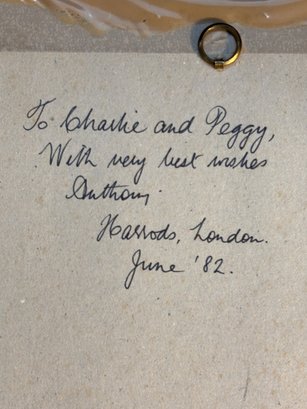 To Charlie and Peggy,
With very best wishes
Anthony.
Harrods, London.
June '82.